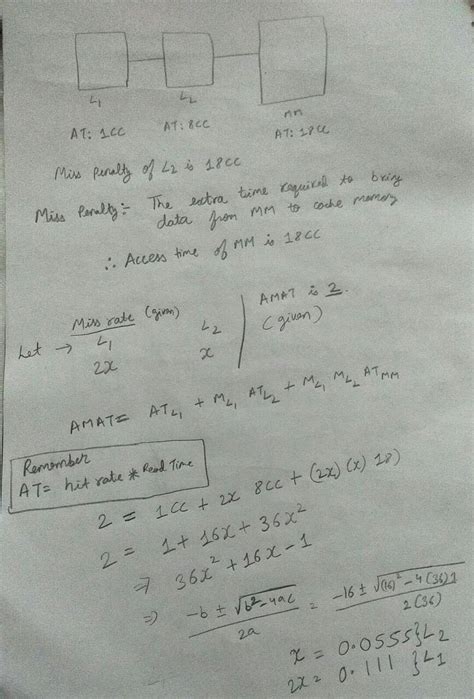 L1 L2 MM
AT: 1CC AT: 8CC AT: 18CC
Miss Penalty of L2 is 18CC
Miss Penalty:- The extra time required to bring
data from MM to cache memory
∴ Access time of MM is 18CC
Miss rate (given)
Let → L1 L2
2x x
AMAT is 2.
(given)
AMAT = AT_L1 + M_L1 AT_L2 + M_L1 M_L2 AT_MM
Remember
AT = hit rate * Read Time
2 = 1CC + 2x 8CC + (2x)(x) 18)
2 = 1 + 16x + 36x²
⇒ 36x² + 16x - 1
⇒ -b ± √b²-4ac / 2a = -16 ± √(16)² - 4(36)1 / 2(36)
x = 0.0555 } L2
2x = 0.111 } L1